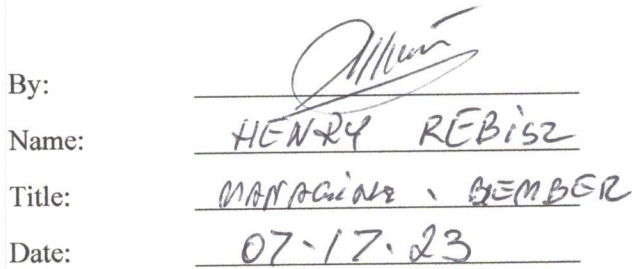 By:
Name: HENRY REBISZ
Title: MANAGING . BEMBER
Date: 07-17.23